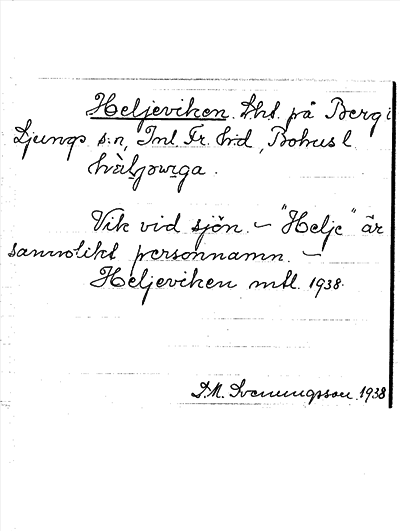 Heljeviken. Lht. på Berg i
Ljungs s:n, Inl. Fr. hd, Bohus l.
Vik vid sjön. — "Helje" är
sannolikt personnamn. —
Heljeviken mtl. 1938.
D.M. Svenungsson 1938